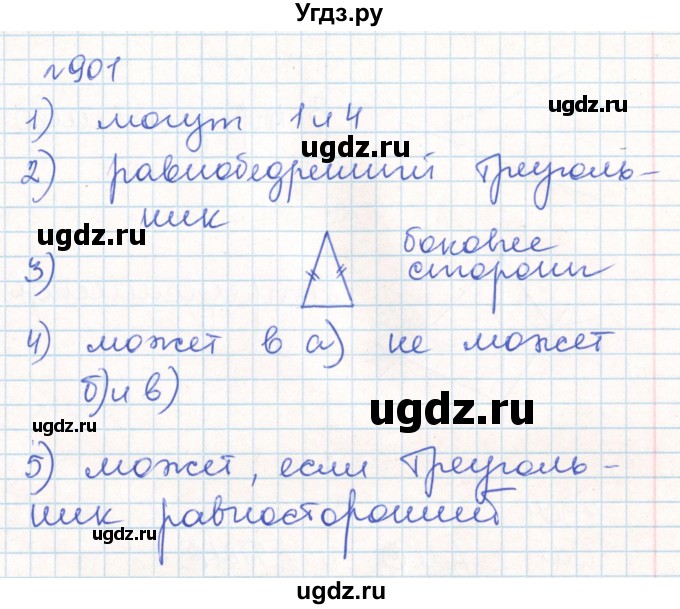 Угдз.ру
№901
ugdz.ru
1) могут 1 и 4
ugdz.ru
2) равнобедренний треуголь-
ник
ugdz.ru
боковые
3) стороны
4) может в а) не может
б) и в)
ugdz.ru
ugdz.ru
5) может, если треуголь-
ник равносторонний
ugdz.ru
ugdz.ru